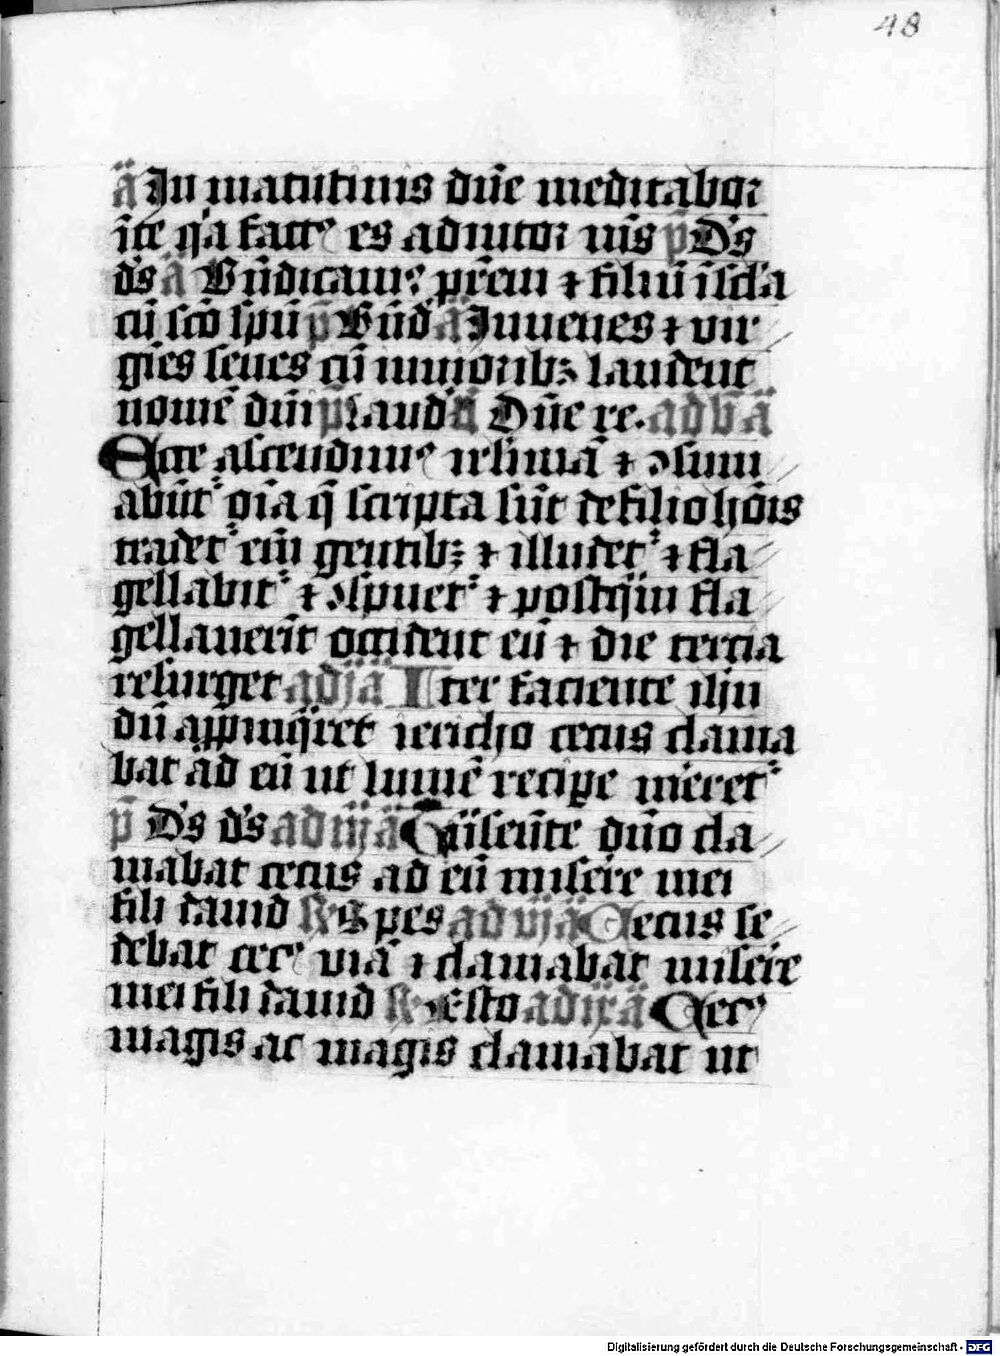 48
ā In matutinis dn̄e meditabor
ī te q̓a factꝰ es adiutor ni̅s p̄ D̓s
d̓s ā Bn̄dicamꝰ pr̄em ⁊ filiū
cū scō spū p̄ Bn̄d ā Iuuenes ⁊ vir
gīes senes cū iuniorib; laudent
nomē dn̄i p̄ Laud ā Dn̄e re. ad b̄ ā
Ecce ascendimꝰ ⁊ ↄsum
abūt᷑ oīa q̄ scripta sūt de filio hōis
tradet᷑ em̄ gentib; ⁊ illudet᷑ ⁊ fla
gellabit᷑ ⁊ ↄspuet᷑ ⁊ postq̄m fla
gellauerīt occident eū ⁊ die tercia
resurget ad j ā Iter faciente ihū
dū app̄inq̄ret iericho cecus clama
bat ad eū ut lumē recipe meret᷑
p̄ D̓s d̓s ad iij ā dn̄o cla
mabat cecus ad eū misere mei
fili dauid ℟ Spes ad vj ā Cecus se
debat cecꝰ viā ⁊ clamabat misere
mei fili dauid ℟ Esto ad ix ā Cecꝰ
magis ac magis clamabat ut
Digitalisierung gefördert durch die Deutsche Forschungsgemeinschaft - DFG